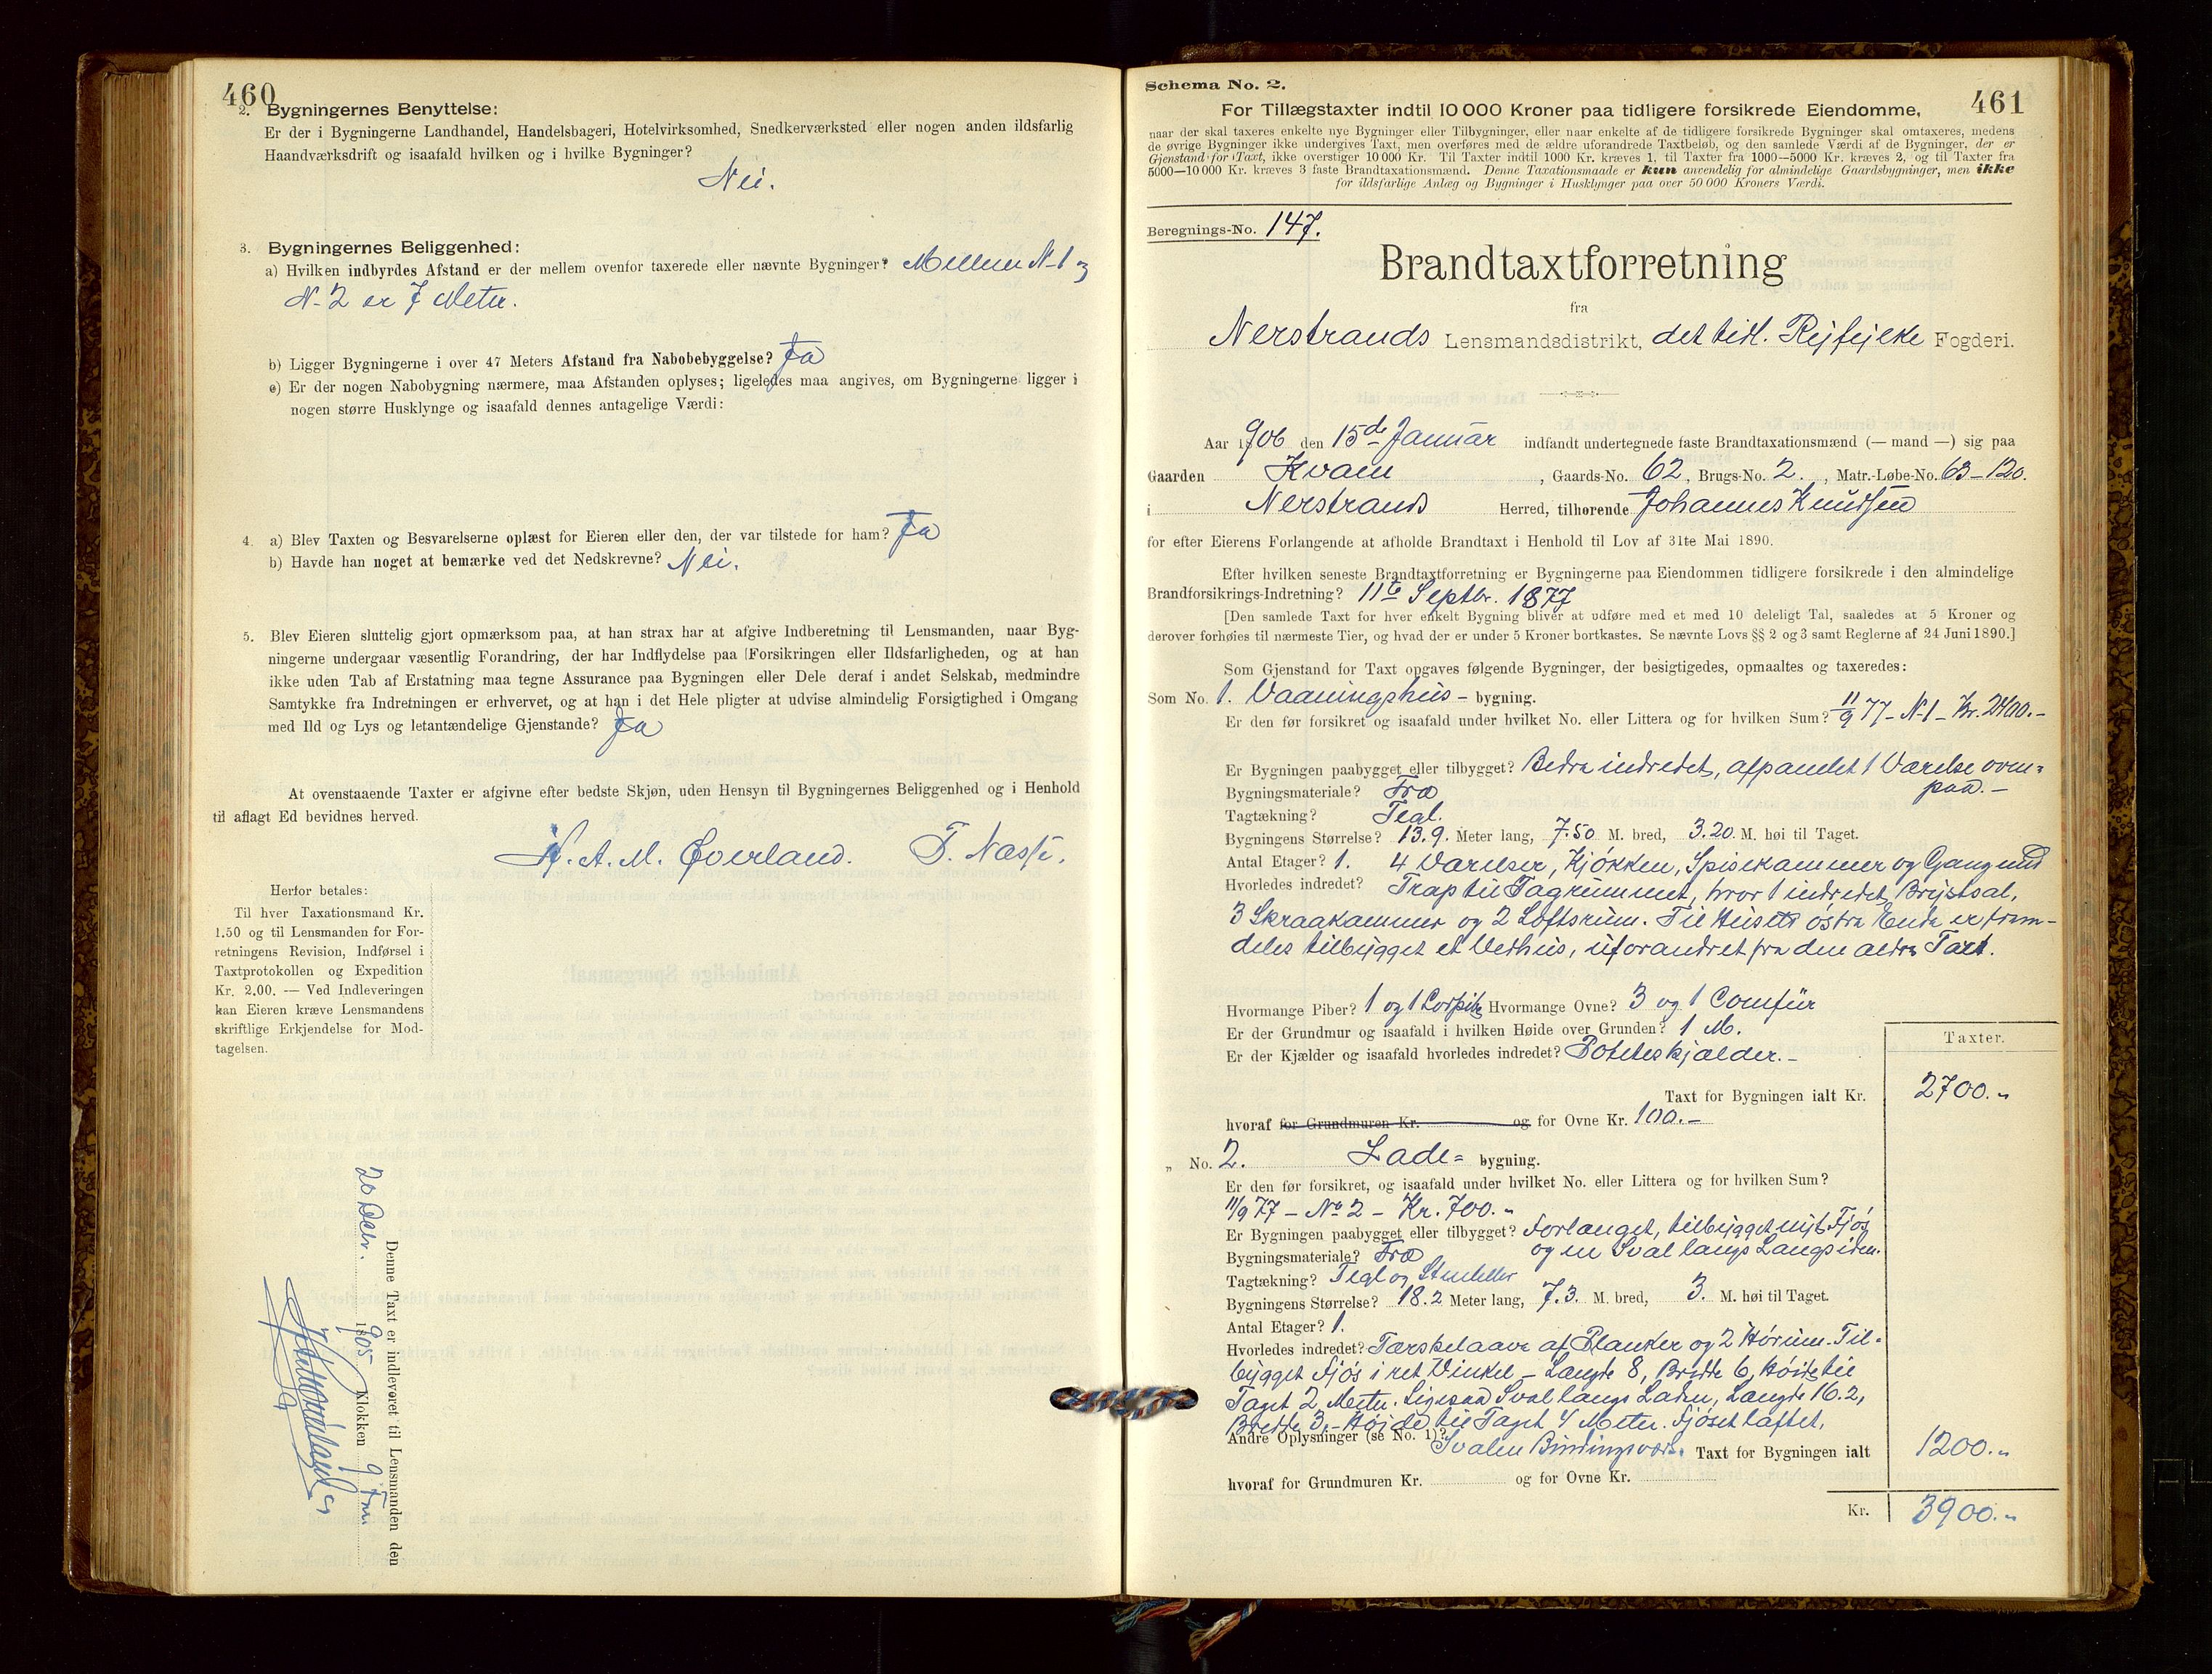 460
2. Bygningernes Benyttelse:
Er der i Bygningerne Landhandel, Handelsbageri, Hotelvirksomhed, Snedkerværksted eller nogen anden ildsfarlig
Haandværksdrift og isaafald hvilken og i hvilke Bygninger?
Nei.
3. Bygningernes Beliggenhed:
a) Hvilken indbyrdes Afstand er der mellem ovenfor taxerede eller nævnte Bygninger? Mellem N-1 og
N-2 er 7 Meter.
b) Ligger Bygningerne i over 47 Meters Afstand fra Nabobebyggelse? Ja
c) Er der nogen Nabobygning nærmere, maa Afstanden oplyses; ligeledes maa angives, om Bygningerne ligger i
nogen større Husklynge og isaafald dennes antagelige Værdi:
4. a) Blev Taxten og Besvarelserne oplæst for Eieren eller den, der var tilstede for ham? Ja
b) Havde han noget at bemærke ved det Nedskrevne? Nei.
5. Blev Eieren sluttelig gjort opmærksom paa, at han strax har at afgive Indberetning til Lensmanden, naar Byg-
ningerne undergaar væsentlig Forandring, der har Indflydelse paa Forsikringen eller Ildsfarligheden, og at han
ikke uden Tab af Erstatning maa tegne Assurance paa Bygningen eller Dele deraf i andet Selskab, medmindre
Samtykke fra Indretningen er erhvervet, og at han i det Hele pligter at udvise almindelig Forsigtighed i Omgang
med Ild og Lys og letantændelige Gjenstande? Ja
At ovenstaaende Taxter er afgivne efter bedste Skjøn, uden Hensyn til Bygningernes Beliggenhed og i Henhold
til aflagt Ed bevidnes herved.
A. M. Øverland. T. Næss.
Herfor betales:
Til hver Taxationsmand Kr.
1.50 og til Lensmanden for For-
retningens Revision, Indførsel i
Taxtprotokollen og Expedition
Kr. 2,00. — Ved Indleveringen
kan Eieren kræve Lensmandens
skriftlige Erkjendelse for Mod-
tagelsen.
Denne Taxt er indleveret til Lensmanden den
20 Decbr. 1905 Klokken 9 Fm
Schema No. 2.
461
For Tillægstaxter indtil 10 000 Kroner paa tidligere forsikrede Eiendomme,
naar der skal taxeres enkelte nye Bygninger eller Tilbygninger, eller naar enkelte af de tidligere forsikrede Bygninger skal omtaxeres, medens
de øvrige Bygninger ikke undergives Taxt, men overføres med de ældre uforandrede Taxtbeløb, og den samlede Værdi af de Bygninger, der er
Gjenstand for Taxt, ikke overstiger 10 000 Kr. Til Taxter indtil 1000 Kr. kræves 1, til Taxter fra 1000—5000 Kr. kræves 2, og til Taxter fra
5000—10 000 Kr. kræves 3 faste Brandtaxationsmænd. Denne Taxationsmaade er kun anvendelig for almindelige Gaardsbygninger, men ikke
for ildsfarlige Anlæg og Bygninger i Husklynger paa over 50 000 Kroners Værdi.
Beregnings-No. 147.
Brandtaxtforretning
fra
Nerstrands Lensmandsdistrikt, det tidl. Ryfylke Fogderi.
Aar 1906 den 15de Januar indfandt undertegnede faste Brandtaxationsmænd (— mand —) sig paa
Gaarden Kvam, Gaards-No. 62, Brugs-No. 2., Matr.-Løbe-No. 63-120.
i Nerstrands Herred, tilhørende Johannes Knudsen
for efter Eierens Forlangende at afholde Brandtaxt i Henhold til Lov af 31te Mai 1890.
Efter hvilken seneste Brandtaxtforretning er Bygningerne paa Eiendommen tidligere forsikrede i den almindelige
Brandforsikrings-Indretning? 11te Septbr. 1877
[Den samlede Taxt for hver enkelt Bygning bliver at udføre med et med 10 deleligt Tal, saaledes at 5 Kroner og
derover forhøies til nærmeste Tier, og hvad der er under 5 Kroner bortkastes. Se nævnte Lovs §§ 2 og 3 samt Reglerne af 24 Juni 1890.]
Som Gjenstand for Taxt opgaves følgende Bygninger, der besigtigedes, opmaaltes og taxeredes:
Som No. 1. Vaaningshus - bygning.
Er den før forsikret og isaafald under hvilket No. eller Littera og for hvilken Sum? 11/9 77 - N-1 - Kr. 2400.-
Er Bygningen paabygget eller tilbygget? Bedre indredet, afpanelet 1 Værelse oven-
paa.-
Bygningsmateriale? Træ
Tagtækning? Tegl.
Bygningens Størrelse? 13.9. Meter lang, 7.50 M. bred, 3.20. M. høi til Taget.
Antal Etager? 1. 4 Værelser, Kjøkken, Spisekammer og Gang med
Hvorledes indredet? Trap til Tagrummet, hvor 1 indredet Brystsal,
3 Skraakammer og 2 Loftsrum. Til Husets østre Ende er frem-
deles tilbygget et Vedhus, uforandret fra den ældre Taxt.
Hvormange Piber? 1 og 1 Hvormange Ovne? 3 og 1 Comfür
Er der Grundmur og isaafald i hvilken Høide over Grunden? 1 M.
Er der Kjælder og isaafald hvorledes indredet? Poteteskjælder.-
Taxter.
Taxt for Bygningen ialt Kr. 2700.-
hvoraf for Grundmuren Kr. og for Ovne Kr. 100.-
" No. 2. Lade- bygning.
Er den før forsikret, og isaafald under hvilket No. eller Littera og for hvilken Sum?
11/9 77 - No 2 - Kr. 700.-
Er Bygningen paabygget eller tilbygget? Forlænget, tilbygget nyt Fjøs
og en Sval langs Langsiden.
Bygningsmateriale? Træ
Tagtækning? Tegl og Stenheller
Bygningens Størrelse? 18.2 Meter lang, 7.3. M. bred, 3. M. høi til Taget.
Antal Etager? 1.
Hvorledes indredet? Tærskelaave af Planker og 2 Hørum. Til-
bygget Fjøs i ret Vinkel - Længde 8, Bredde 6, Høide til
Taget 2, Meter. Ligesaa Sval langs Laden, Længde 16.2,
Bredde 3,- Højde til Taget Meter. Fjøset laftet,
Andre Oplysninger (se No. 1)? Svalen Bindingsværk. Taxt for Bygningen ialt 1200.-
hvoraf for Grundmuren Kr. og for Ovne Kr.
Kr. 3900.-